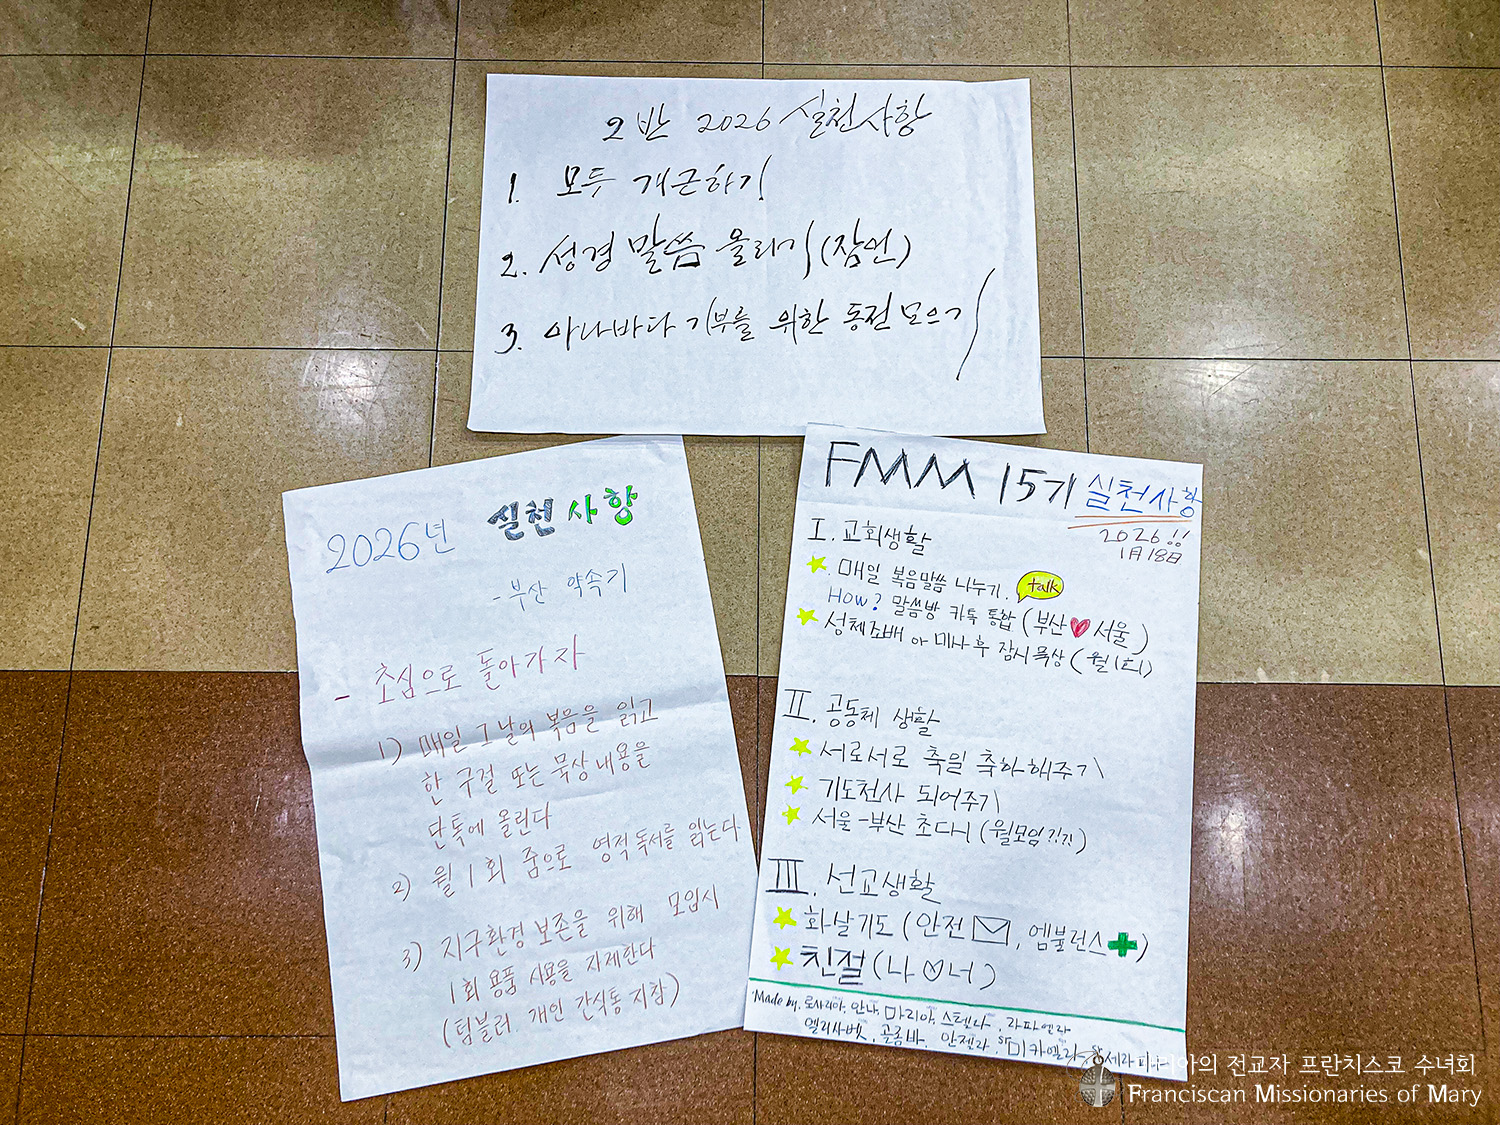 2반 2026 실천사항
1. 모두 개근하기
2. 성경 말씀 올리기 (잠언)
3. 아나바다 기부를 위한 동전 모으기
2026년 실천사항
- 부산 약속기
- 초심으로 돌아가자
1) 매일 그날의 복음을 읽고
한 구절 또는 묵상내용을
단톡에 올린다
2) 월 1회 줌으로 영적독서를 읽는다
3) 지구환경 보존을 위해 모임시
1회 용품 사용을 자제한다
(텀블러. 개인 간식통 지참)
FMM 15기 실천사항
2026!!
1月 18日
I. 교회생활
매일 복음말씀 나누기. talk
HOW? 말씀방 카톡 통합 (부산♥서울)
성체조배 or 미사 후 잠시 묵상 (월 1회)
II. 공동체 생활
서로서로 축일 축하해주기
기도천사 되어주기
서울-부산 초대시 (월모임)
III. 선교생활
화살기도 (안전, 엠뷸런스)
친절 (나♡너)
Made by. 로사리아. 안나. 마리아. 스텔나. 라파엘라
엘리사벳. 골롬바. 안젤라. sr미카엘라
마리아의 전교자 프란치스코 수녀회
Franciscan Missionaries of Mary